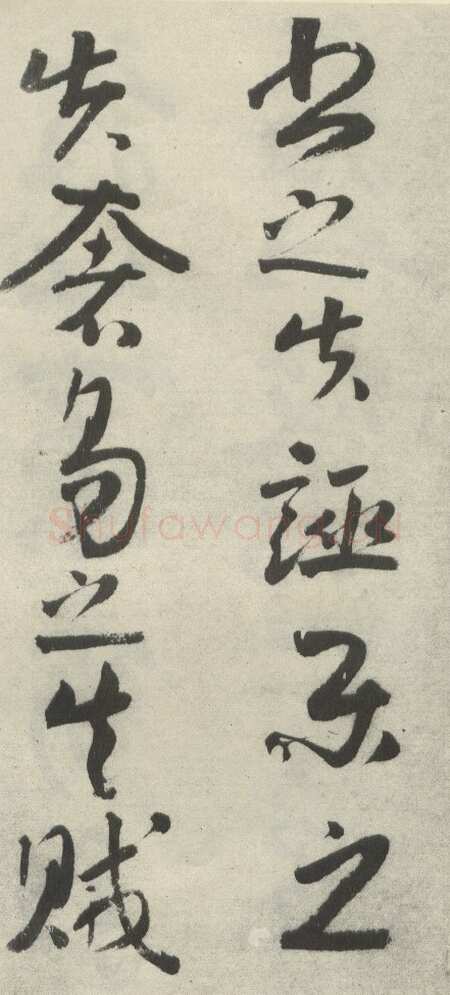 書之失誣樂之
失奢易之失賊
Shufawang.cn